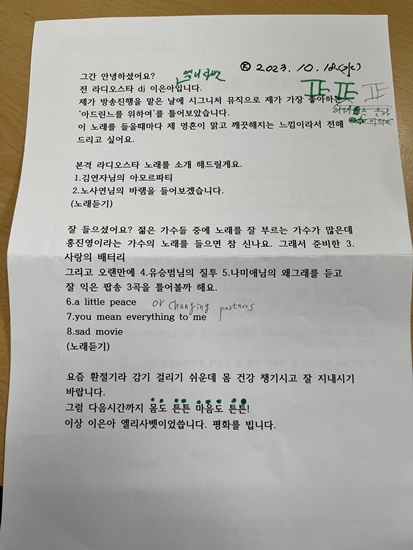 ⓚ 2023. 10. 18(수)
그간 안녕하셨어요?
전 라디오스타 dj 이은아입니다.
제가 방송진행을 맡은 날에 시그니처 뮤직으로 제가 가장 좋아하는
'아드린느를 위하여'를 틀어보았습니다.
이 노래를 들을때마다 제 영혼이 맑고 깨끗해지는 느낌이라서 전해
드리고 싶어요.
본격 라디오스타 노래를 소개 해드릴게요.
1.김연자님의 아모르파티
2.노사연님의 바램을 들어보겠습니다.
(노래듣기)
잘 들으셨어요? 젊은 가수들 중에 노래를 잘 부르는 가수가 많은데
홍진영이라는 가수의 노래를 들으면 참 신나요. 그래서 준비한 3.
사랑의 배터리
그리고 오랜만에 4.유승범님의 질투 5.나미애님의 왜그래를 듣고
잘 익은 팝송 3곡을 틀어볼까 해요.
6.a little peace or changing partners
7.you mean everything to me
8.sad movie
(노래듣기)
요즘 환절기라 감기 걸리기 쉬운데 몸 건강 챙기시고 잘 지내시기
바랍니다.
그럼 다음시간까지 몸도 튼튼 마음도 튼튼!
이상 이은아 엘리사벳이었습니다. 평화를 빕니다.